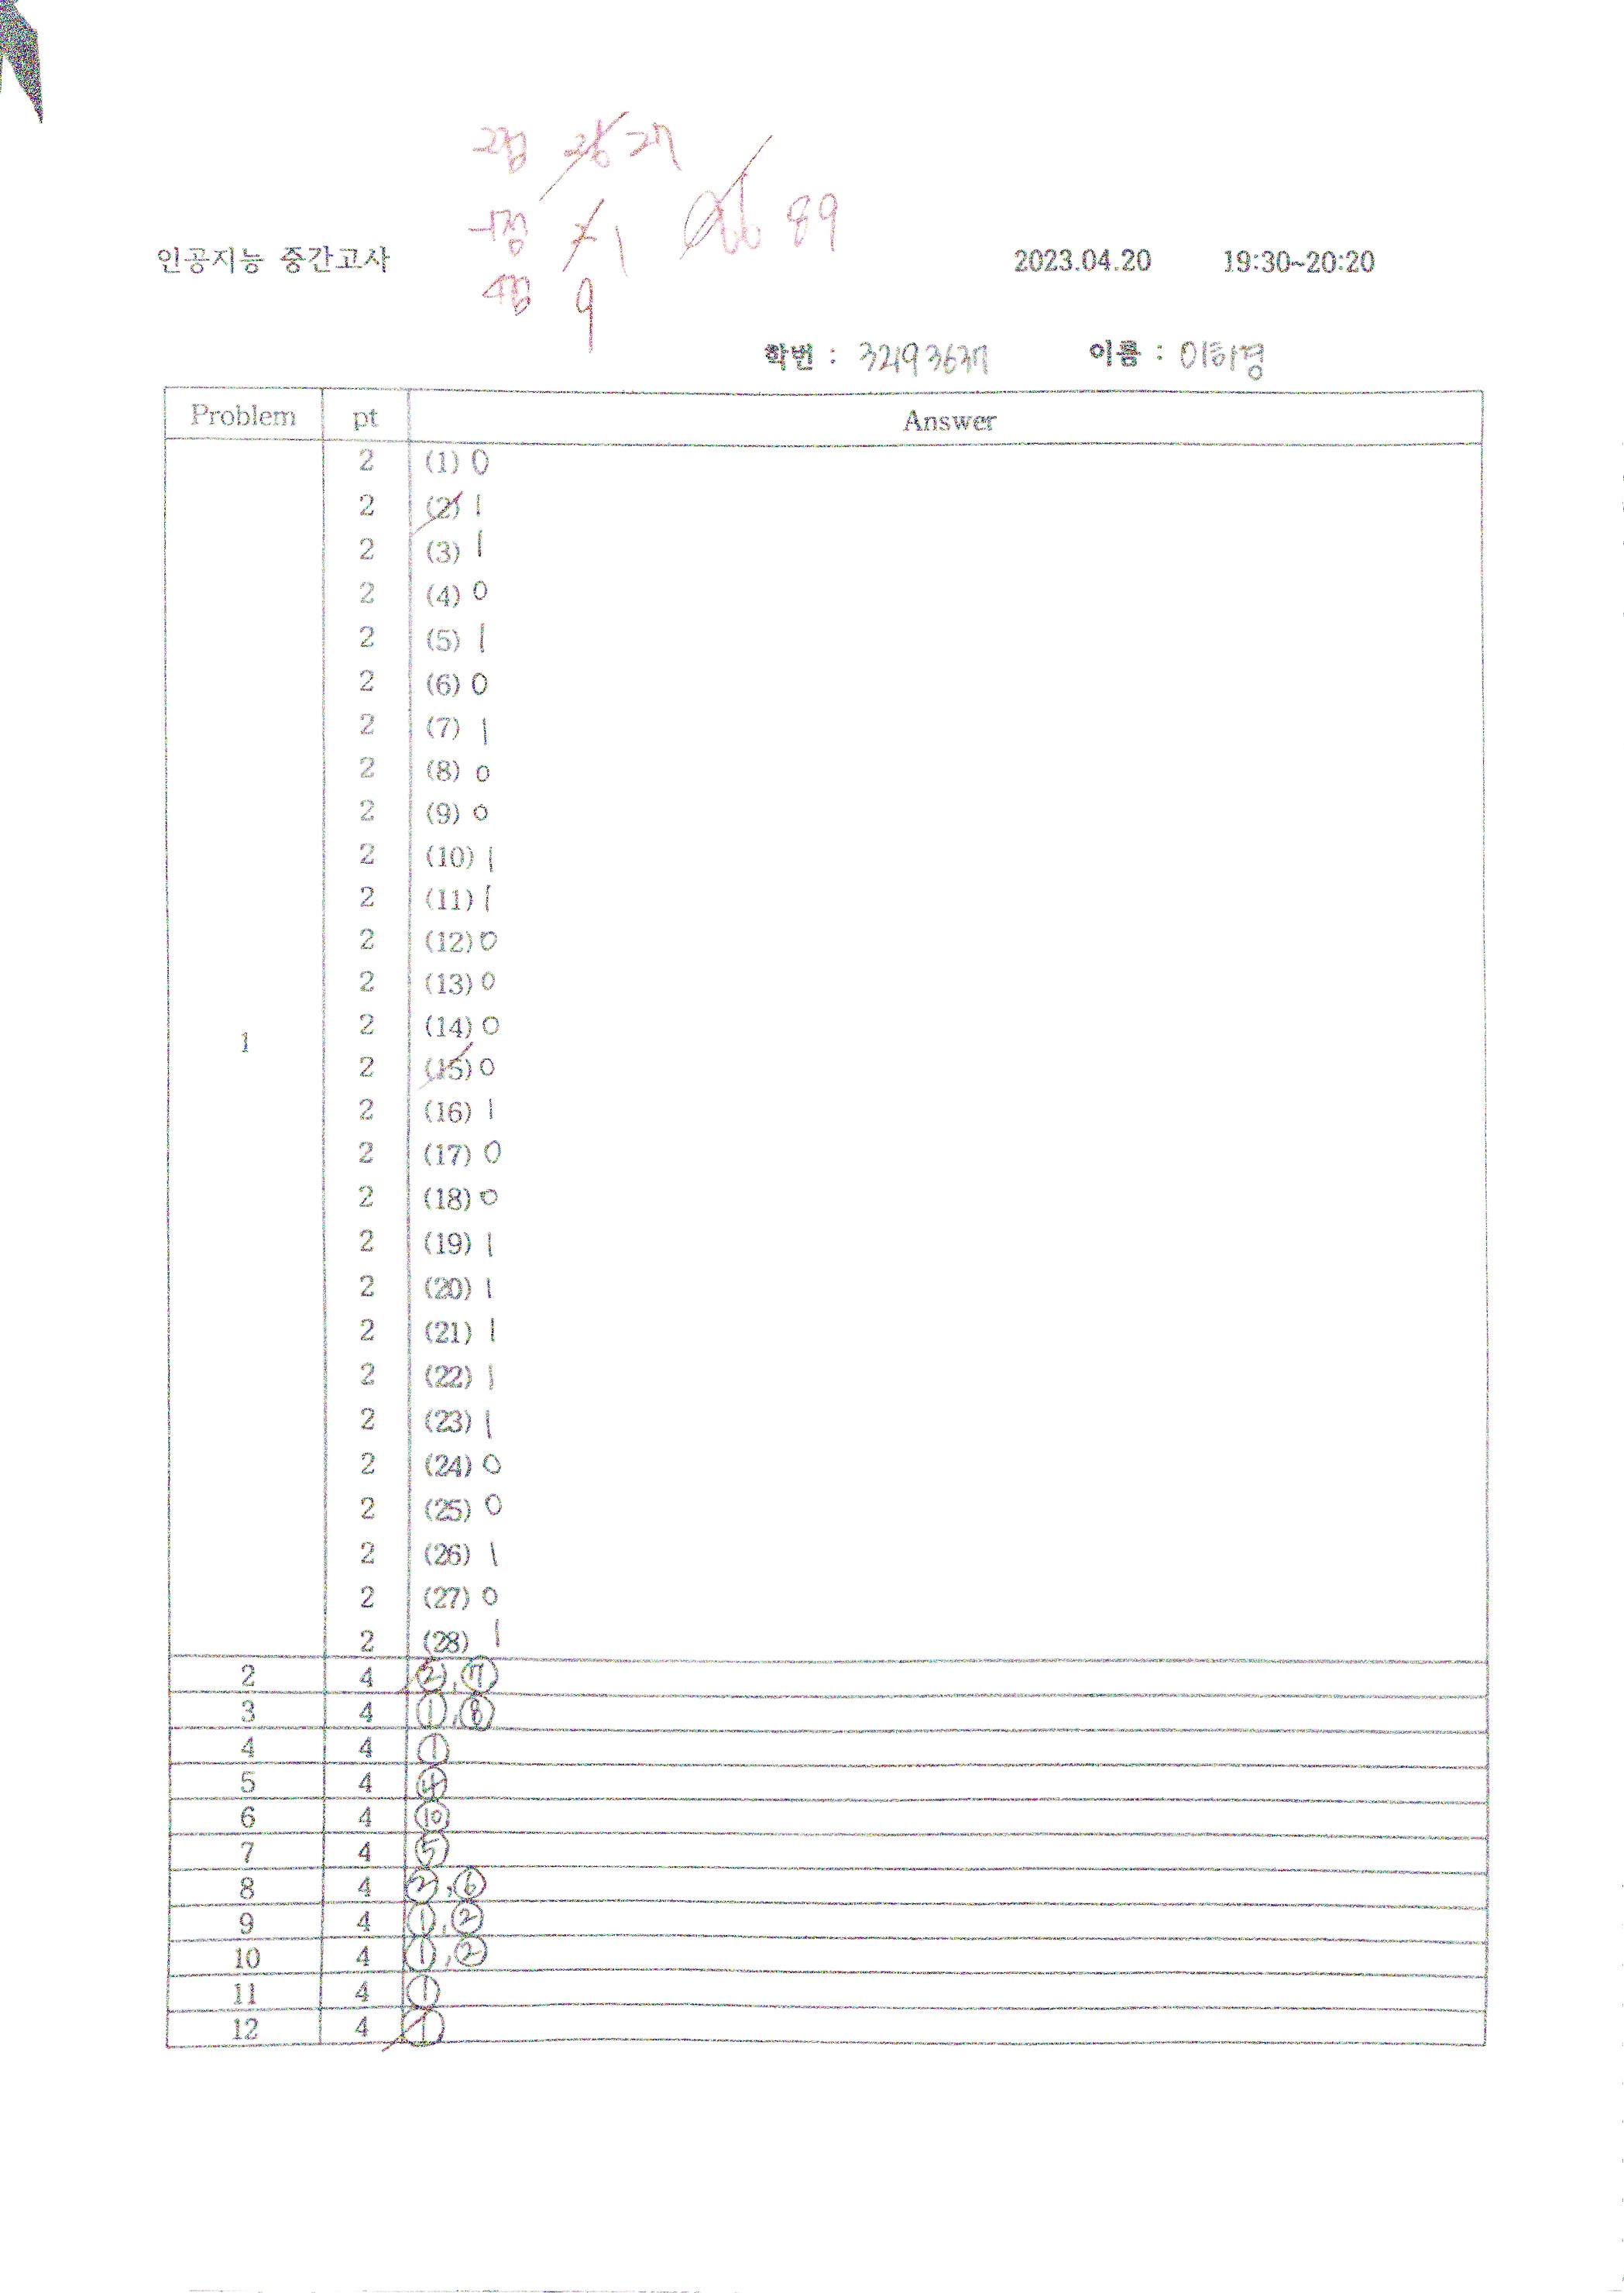 2점 26 27
-1점 2 1 86 89
인공지능 중간고사 2023.04.20 19:30~20:20
4점 9
학번 : 32193637 이름 : 이하경
Problem pt Answer
2 (1) 0
2 (2) 1
2 (3) 1
2 (4) 0
2 (5) 1
2 (6) 0
2 (7) 1
2 (8) 0
2 (9) 0
2 (10) 1
2 (11) 1
2 (12) 0
2 (13) 0
2 (14) 0
1
2 (15) 0
2 (16) 1
2 (17) 0
2 (18) 0
2 (19) 1
2 (20) 1
2 (21) 1
2 (22) 1
2 (23) 1
2 (24) 0
2 (25) 0
2 (26) 1
2 (27) 0
2 (28) 1
2 4 ②, ⑦
3 4 ①, ⑧
4 4 ①
5 4 ④
6 4 ⑩
7 4 ⑤
8 4 ②, ⑥
9 4 ①, ②
10 4 ①, ②
11 4 ①
12 4 ①